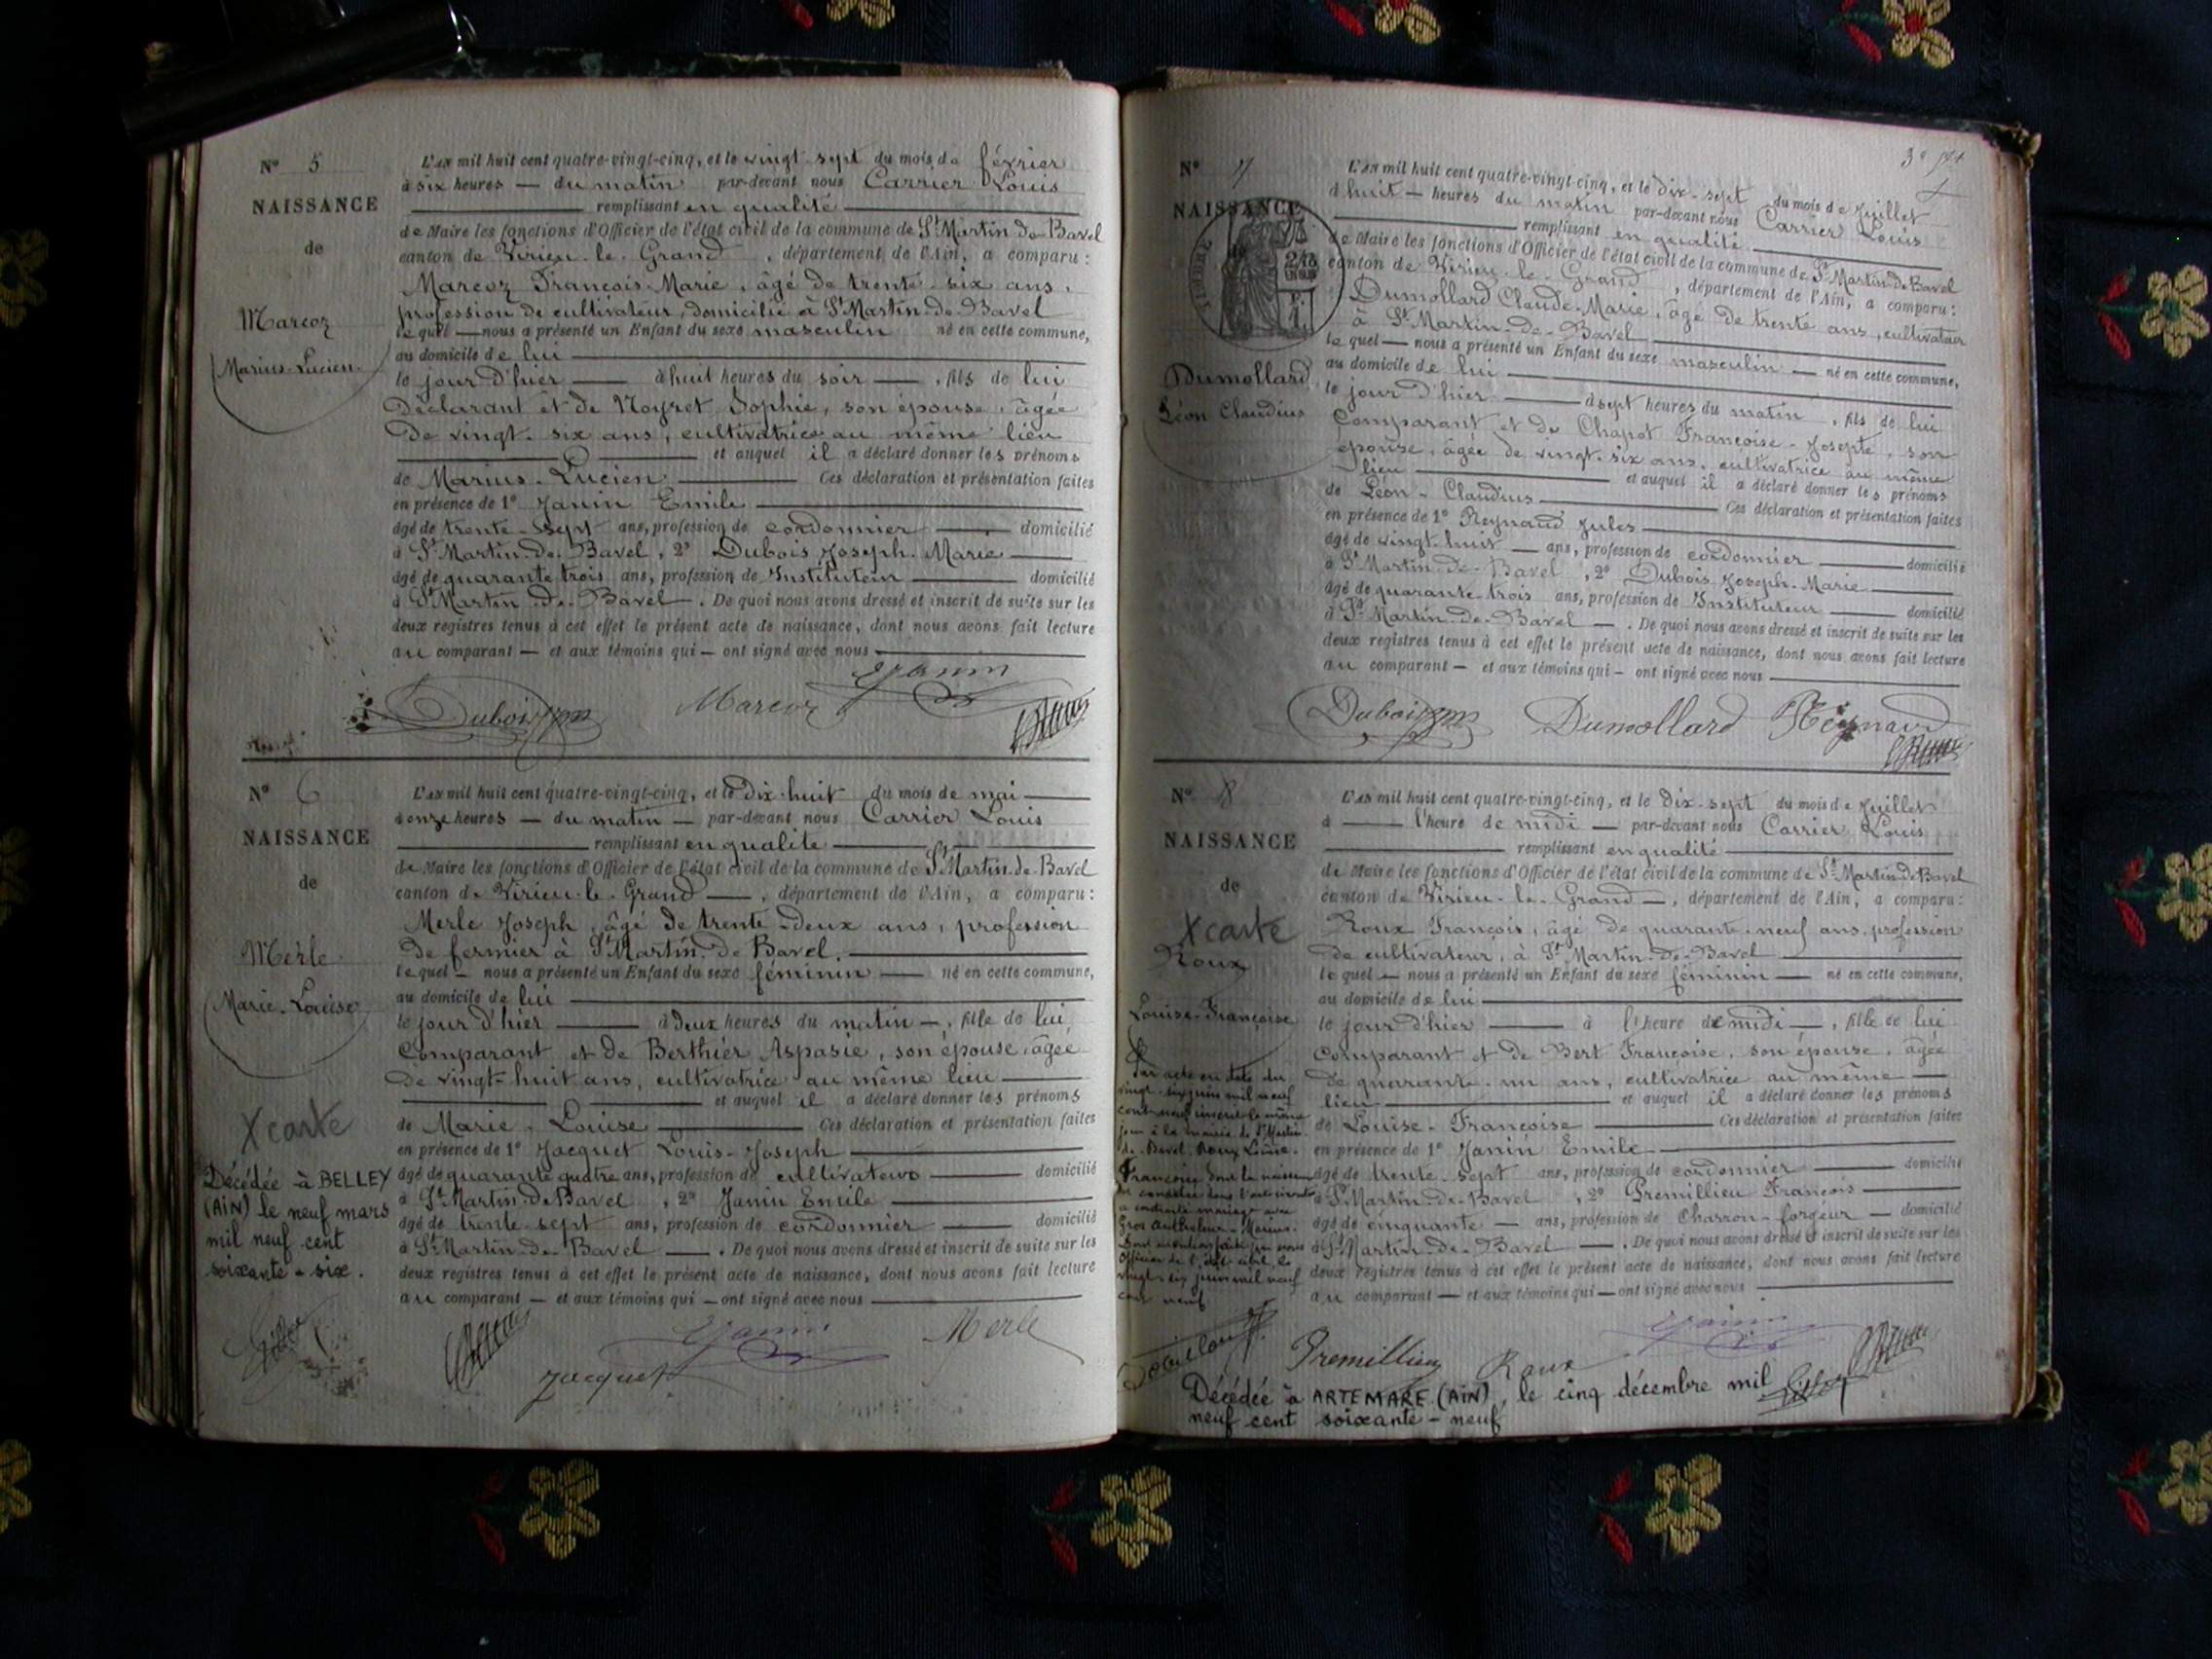 N° 5
NAISSANCE
de
Marcoz
Marius-Lucien
L'an mil huit cent quatre-vingt-cinq, et le vingt-sept du mois de février
à six heures — du matin par-devant nous Carrier Louis
remplissant en qualité
de Maire les fonctions d'Officier de l'état civil de la commune de St Martin-de-Bavel
canton de Virieu-le-Grand, département de l'Ain, a comparu :
Marcoz François-Marie, âgé de trente-six ans,
profession de cultivateur, domicilié à St Martin-de-Bavel
lequel — nous a présenté un Enfant du sexe masculin né en cette commune,
au domicile de lui
le jour d'hier — à huit heures du soir —, fils de lui
Déclarant et de Noyret Sophie, son épouse, âgée
de vingt-six ans, cultivatrice au même lieu
et auquel il a déclaré donner les prénoms
de Marius-Lucien Ces déclaration et présentation faites
en présence de 1° Janin Emile
âgé de trente-sept ans, profession de cordonnier — domicilié
à St Martin-de-Bavel, 2° Dubois Joseph-Marie
âgé de quarante trois ans, profession de Instituteur — domicilié
à St Martin-de-Bavel —. De quoi nous avons dressé et inscrit de suite sur les
deux registres tenus à cet effet le présent acte de naissance, dont nous avons fait lecture
au comparant — et aux témoins qui — ont signé avec nous
EJanin
Dubois Marcoz
N° 6
NAISSANCE
de
Merle
Marie-Louise
X carte
Décédée à BELLEY
(AIN) le neuf mars
mil neuf cent
soixante-six.
L'an mil huit cent quatre-vingt-cinq, et le Dix-huit du mois de mai
à onze heures — du matin — par-devant nous Carrier Louis
remplissant en qualité
de Maire les fonctions d'Officier de l'état civil de la commune de St Martin-de-Bavel
canton de Virieu-le-Grand —, département de l'Ain, a comparu :
Merle Joseph, âgé de trente-deux ans, profession
de fermier à St Martin-de-Bavel.
lequel — nous a présenté un Enfant du sexe féminin — né en cette commune,
au domicile de lui
le jour d'hier — à deux heures du matin —, fille de lui
Comparant et de Berthier Aspasie, son épouse, âgée
de vingt-huit ans, cultivatrice au même lieu
et auquel il a déclaré donner les prénoms
de Marie-Louise Ces déclaration et présentation faites
en présence de 1° Jacquet Louis-Joseph
âgé de quarante quatre ans, profession de cultivateur — domicilié
à St Martin-de-Bavel, 2° Janin Emile
âgé de trente-sept ans, profession de cordonnier — domicilié
à St Martin-de-Bavel —. De quoi nous avons dressé et inscrit de suite sur les
deux registres tenus à cet effet le présent acte de naissance, dont nous avons fait lecture
au comparant — et aux témoins qui — ont signé avec nous
EJanin Merle
Jacquet
N° 7
NAISSANCE
Dumollard
Léon Claudius
L'an mil huit cent quatre-vingt-cinq, et le dix-sept du mois de Juillet
à huit — heures du matin par-devant nous Carrier Louis
remplissant en qualité
de Maire les fonctions d'Officier de l'état civil de la commune de St Martin-de-Bavel
canton de Virieu-le-Grand, département de l'Ain, a comparu :
Dumollard Claude-Marie, âgé de trente ans, cultivateur
à St Martin-de-Bavel
lequel — nous a présenté un Enfant du sexe masculin — né en cette commune,
au domicile de lui
le jour d'hier — à sept heures du matin, fils de lui
Comparant et de Chapot Françoise-Josepte, son
épouse, âgée de vingt-six ans, cultivatrice au même
lieu et auquel il a déclaré donner les prénoms
de Léon-Claudius Ces déclaration et présentation faites
en présence de 1° Reynaud Jules
âgé de vingt-huit — ans, profession de cordonnier — domicilié
à St Martin-de-Bavel, 2° Dubois Joseph-Marie
âgé de quarante-trois ans, profession de Instituteur — domicilié
à St Martin-de-Bavel —. De quoi nous avons dressé et inscrit de suite sur les
deux registres tenus à cet effet le présent acte de naissance, dont nous avons fait lecture
au comparant — et aux témoins qui — ont signé avec nous
Dubois Dumollard Reynaud
N° 8
NAISSANCE
de
X carte
Roux
Louise-Françoise
Par acte en date du
vingt-six juin mil neuf
cent neuf inscrit le même
jour à la mairie de St Martin-
de-Bavel, Roux Louise-
Françoise dont la naissance
est constatée dans l'acte ci-contre
a contracté mariage avec
Gros Anthelme-Marius.
Dont mention faite par nous
Officier de l'état civil, le
vingt-six juin mil neuf
cent neuf
L'an mil huit cent quatre-vingt-cinq, et le Dix-sept du mois de Juillet
à — l'heure de midi — par-devant nous Carrier Louis
remplissant en qualité
de Maire les fonctions d'Officier de l'état civil de la commune de St Martin-de-Bavel
canton de Virieu-le-Grand —, département de l'Ain, a comparu :
Roux François, âgé de quarante-neuf ans, profession
de cultivateur, à St Martin-de-Bavel
lequel — nous a présenté un Enfant du sexe féminin — né en cette commune,
au domicile de lui
le jour d'hier — à l'heure de midi —, fille de lui
comparant et de Bert Françoise, son épouse, âgée
de quarante-un ans, cultivatrice au même
lieu et auquel il a déclaré donner les prénoms
de Louise-Françoise Ces déclaration et présentation faites
en présence de 1° Janin Emile
âgé de trente-sept ans, profession de cordonnier — domicilié
à St Martin-de-Bavel, 2° Premillieu François
âgé de cinquante — ans, profession de Charron-forgeur — domicilié
à St Martin-de-Bavel —. De quoi nous avons dressé et inscrit de suite sur les
deux registres tenus à cet effet le présent acte de naissance, dont nous avons fait lecture
au comparant — et aux témoins qui — ont signé avec nous
EJanin
Premillieu Roux
Décédée à ARTEMARE (AIN), le cinq décembre mil
neuf cent soixante-neuf